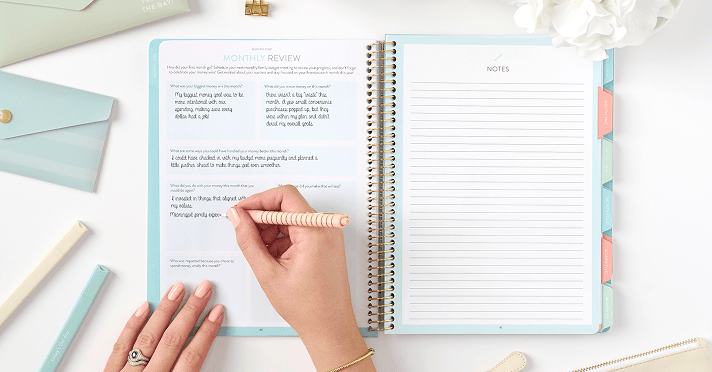 THE DAY!
MONTHLY REVIEW
How did your first month go? Schedule your next monthly family budget meeting to review your progress, and don't forget
to celebrate your money wins! Get excited about your success and stay focused on your finances each month this year!
What was your biggest money win this month?
My biggest money goal was to be
more intentional with our
spending, making sure every
dollar had a job!
What did you waste money on this month?
there wasn't a big "waste" this
month. A few small convenience
purchases popped up, but they
were within my plan and didn't
derail my overall goals.
What are some ways you could have handled your money better this month?
I could have checked in with my budget more frequently and planned a
little further ahead to make things go even smoother.
What did you do with your money this month that you
would do again?
I invested in things that aligned with
my values.
Meaningful family
What was
to spend money wisely this month?
NOTES